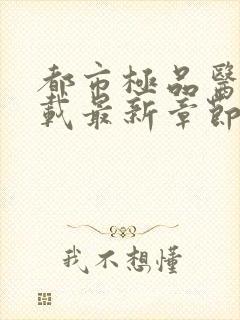 都市極品醫
載最新章節
我不想懂